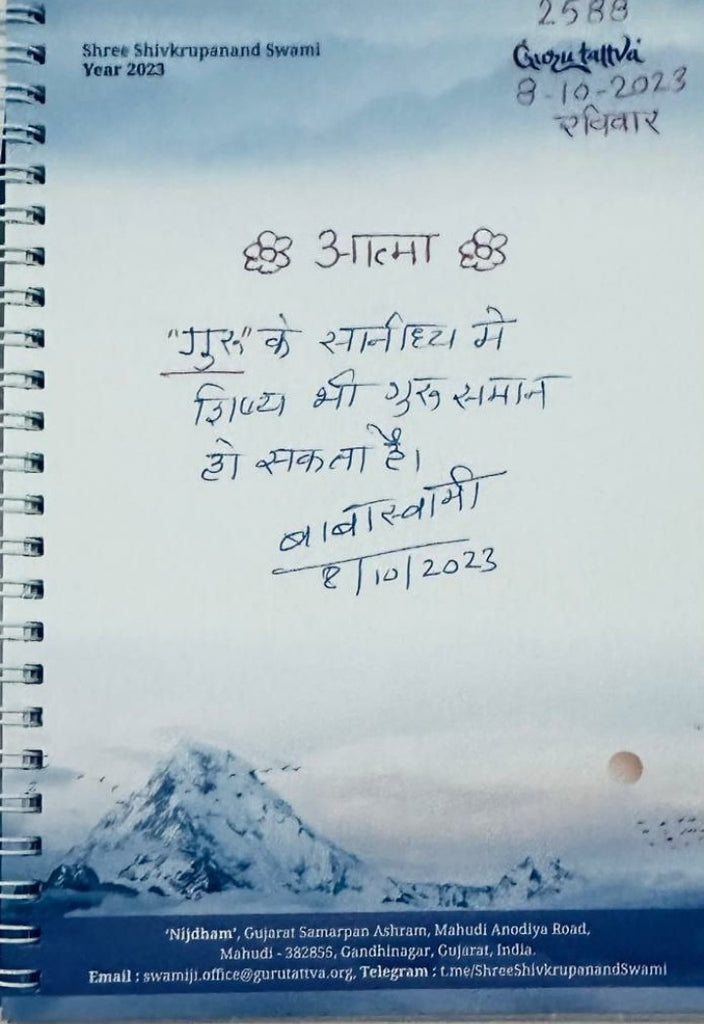 2588
Shree Shivkrupanand Swami
Year 2023
Gurutattva
8-10-2023
रविवार
आत्मा
"गुरू" के सानिध्य मे
शिष्य भी गुरू समान
हो सकता है।
बाबास्वामी
8/10/2023
'Nijdham', Gujarat Samarpan Ashram, Mahudi Anodiya Road,
Mahudi - 382855, Gandhinagar, Gujarat, India.
Email : swamiji.office@gurutattva.org, Telegram : t.me/ShreeShivkrupanandSwami